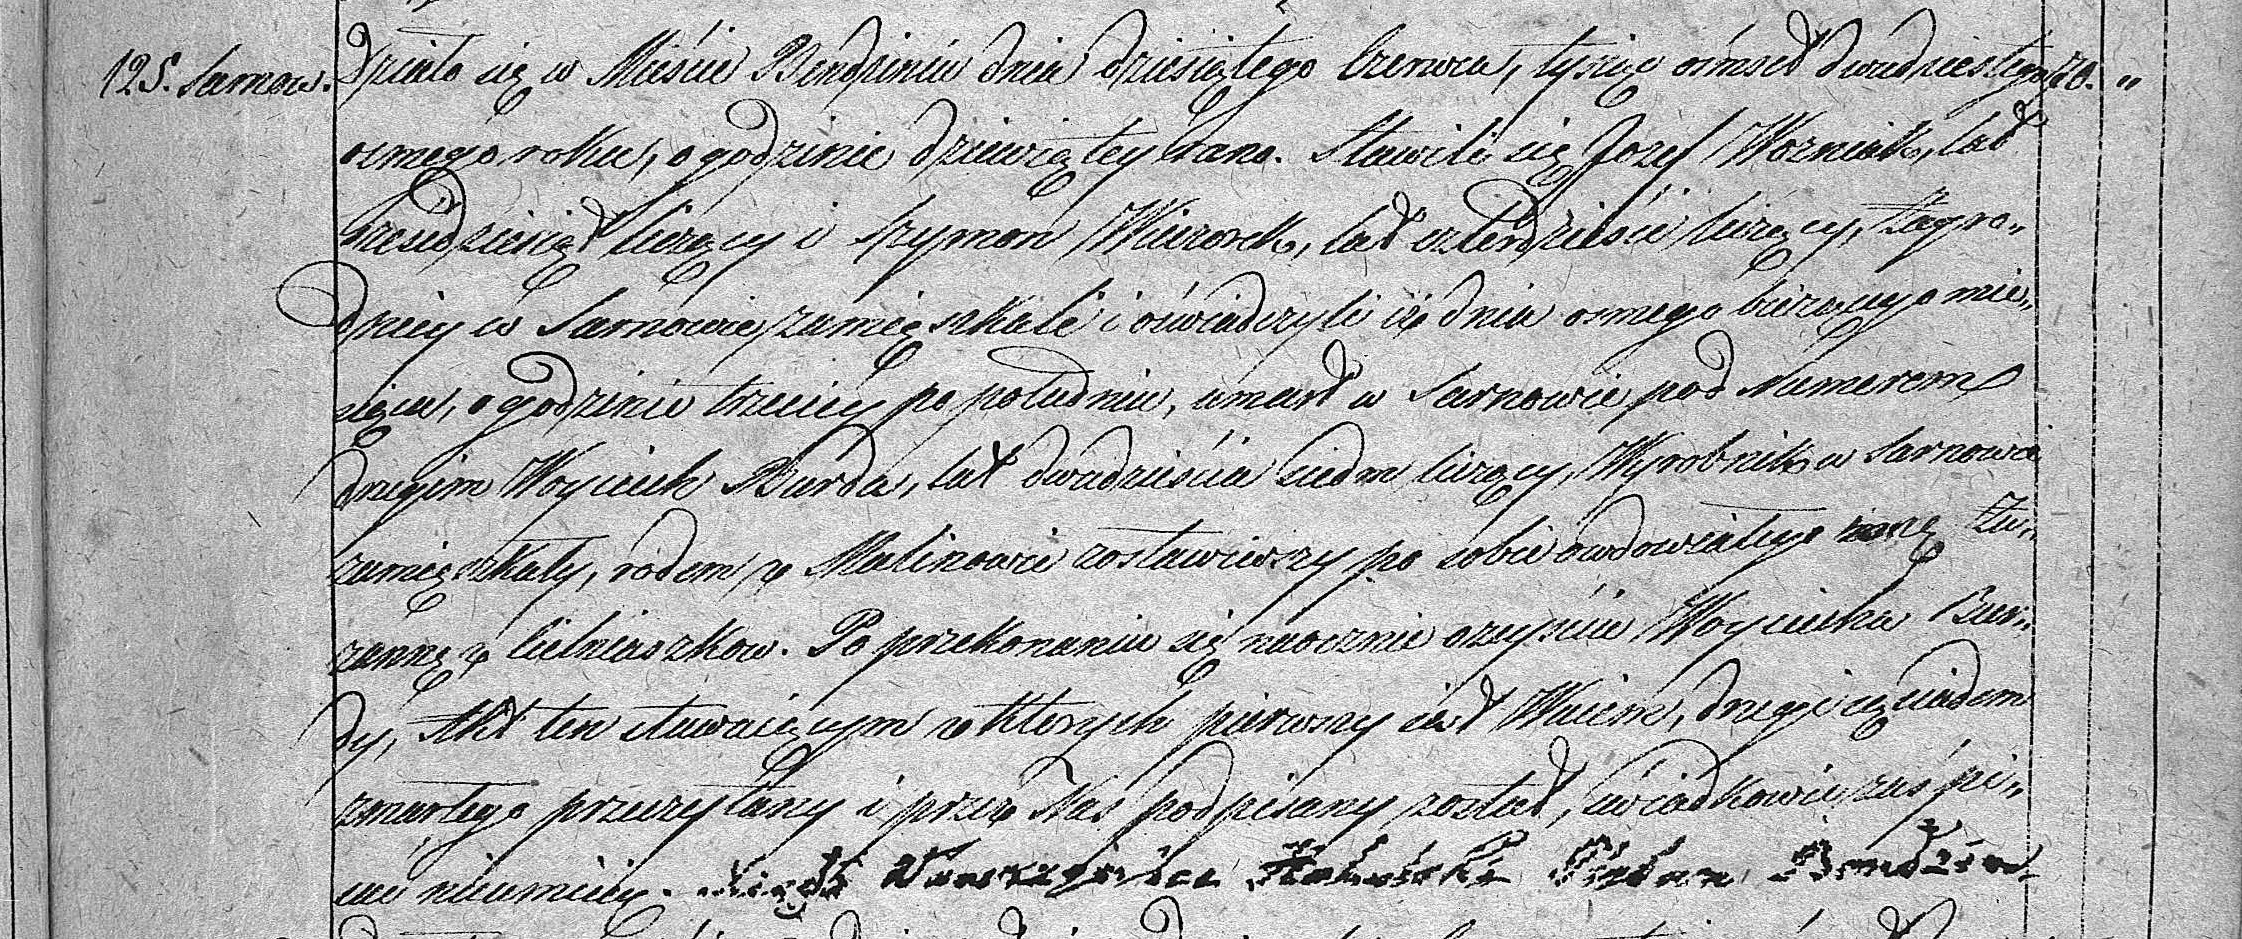 125. Sarnow. Działo się w Mieście Bendzinie dnia dziesiątego Czerwca, tysiąc ośmset dwudziestego 20. „
osmego roku, o godzinie dziewiątey rano. Stawili się Jozef Wozniak, lat
sześćdziesiąt liczący i Szymon Wieczorek, lat czterdzieści liczący, Zagro„
dnicy w Sarnowie zamięszkali i oświadczyli iż dnia osmego bieżącego mie„
siąca, o godzinie trzeciey po południu, umarł w Sarnowie pod Numerem
drugim Woyciech Burda, lat dwadzieścia siedm liczący, Wyrobnik w Sarnowie
zamięszkały, rodem z Malinowic zostawiwszy po sobie owdowiałego żonę Zu„
zannę z Cieluiaszkow. Po przekonaniu się naocznie o zeyściu Woyciecha Bur„
dy, Akt ten stawaiącym z których pierwszy iest Wuiem, drugi sąsiadem
zmarłego przeczytany i przez Nas podpisany został, świadkowie zaś pi„
sać nieumieią. Xiądz Wawrzyniec Pleban Bendziń.